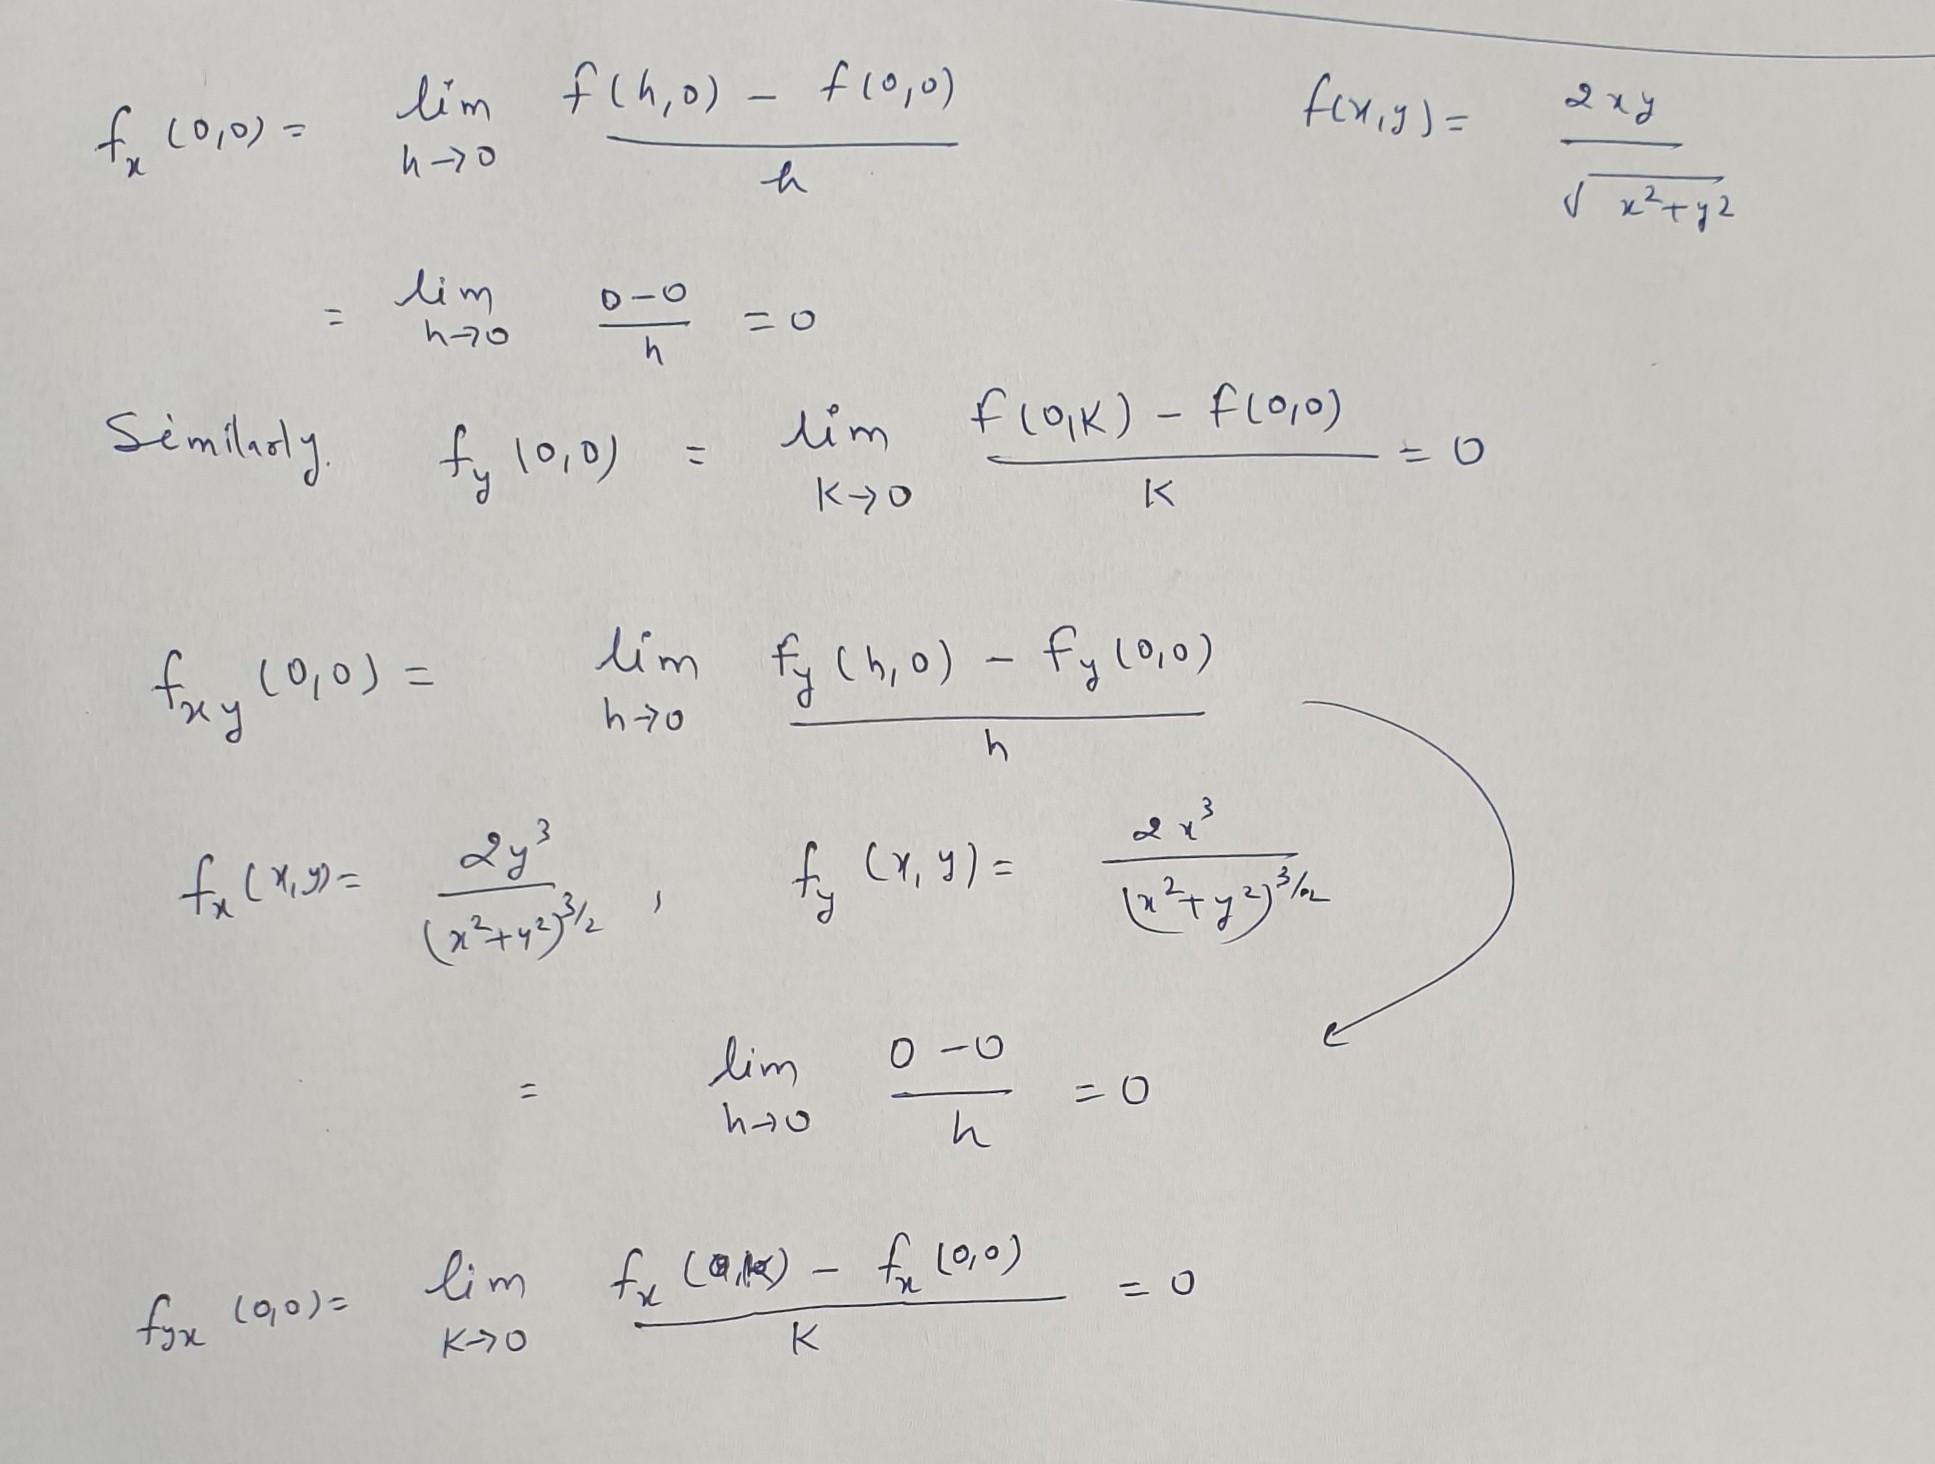 f_x (0,0) = lim_{h→0} \frac{f(h,0) - f(0,0)}{h}
f(x,y) = \frac{2xy}{\sqrt{x^2+y^2}}
= lim_{h→0} \frac{0-0}{h} = 0
Similarly. f_y (0,0) = lim_{K→0} \frac{f(0,K) - f(0,0)}{K} = 0
f_{xy} (0,0) = lim_{h→0} \frac{f_y (h,0) - f_y (0,0)}{h}
f_x (x,y) = \frac{2y^3}{(x^2+y^2)^{3/2}} , f_y (x,y) = \frac{2x^3}{(x^2+y^2)^{3/2}}
= lim_{h→0} \frac{0-0}{h} = 0
f_{yx} (0,0) = lim_{K→0} \frac{f_x (0,k) - f_x (0,0)}{K} = 0